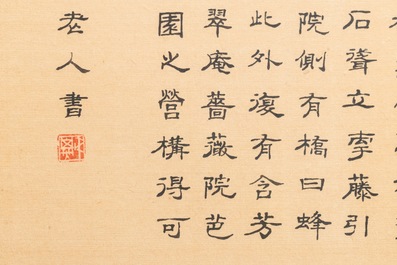 石聳立牽藤引
院側有橋曰蜂
此外復有含芳
翠庵薔薇院芭
園之營構得可
老人書